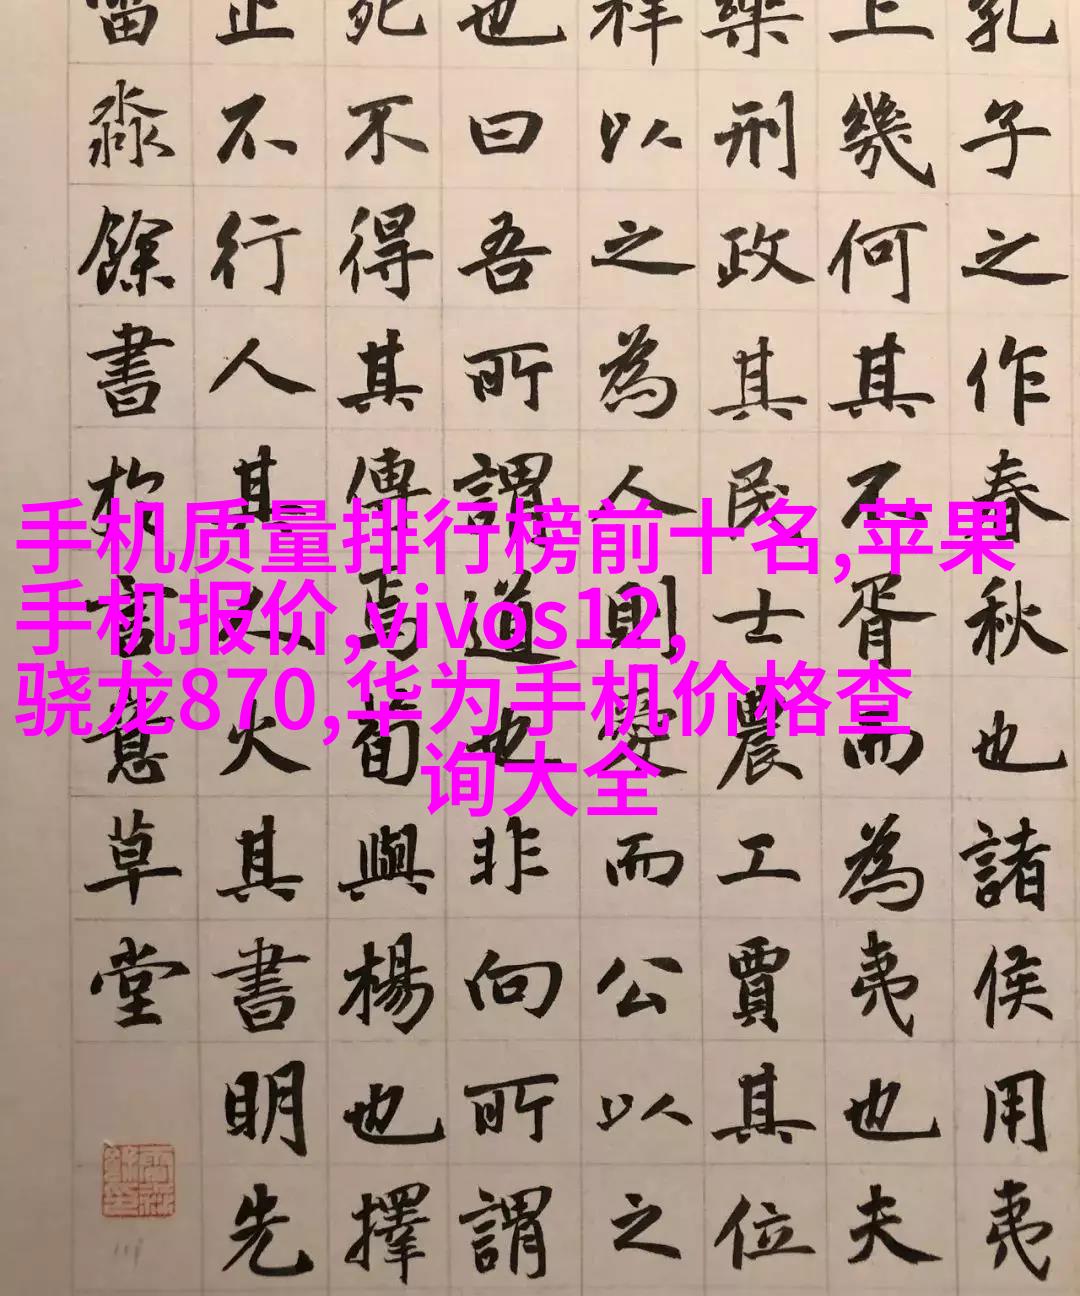 手机质量排行榜前十名,苹果
手机报价,vivos12,
骁龙870,华为手机价格查
询大全
孔子之作春秋也諸侯用夷
上幾何其不胥而為夷也夫
樂刑政其民士農工賈其位
祥以之為人則愛而公以之
也曰吾所謂道也非向所謂
死不得其傳焉荀與楊也擇
止不行人其人火其書明先
淼餘書於言意草堂